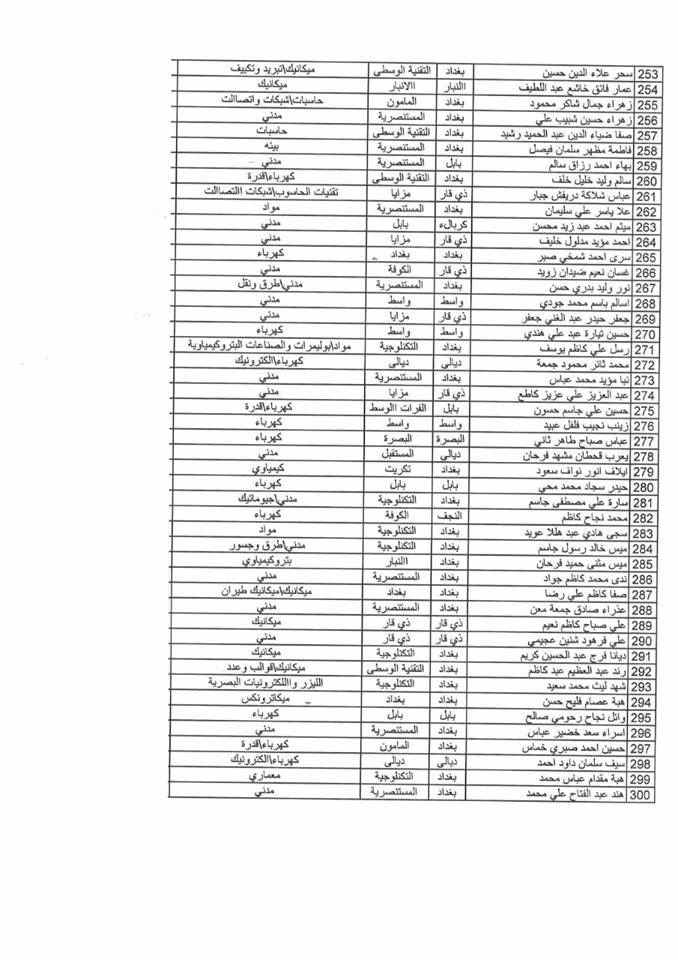 253 سحر علاء الدين حسين بغداد التقنية الوسطى ميكانيك\تبريد وتكييف
254 عمار فائق خاشع عبد اللطيف االنبار االانبار ميكانيك
255 زهراء جمال شاكر محمود بغداد المامون حاسبات\شبكات واتصاالت
256 زهراء حسين شبيب علي بغداد المستنصرية مدني
257 صفا ضياء الدين عبد الحميد رشيد بغداد التقنية الوسطى حاسبات
258 فاطمة مظهر سلمان فيصل بغداد المستنصرية بيئه
259 بهاء احمد رزاق سالم بابل المستنصرية مدني
260 سالم وليد خليل خلف بغداد التقنية الوسطى كهرباء\قدرة
261 عباس شلاكة دريفش جبار ذي قار مزايا تقنيات الحاسوب\شبكات االتصاالت
262 علا ياسر علي سليمان بغداد المستنصرية مواد
263 ميثم احمد عبد زيد محسن كربالء بابل مدني
264 احمد مؤيد مدلول خليف ذي قار مزايا مدني
265 سرى احمد شمخي صبر بغداد بغداد كهرباء
266 غسان نعيم ضيدان زويد ذي قار الكوفة مدني
267 نور وليد بدري حسن بغداد المستنصرية مدني\طرق ونقل
268 اسالم باسم محمد جودي واسط واسط مدني
269 جعفر حيدر عبد الغني جعفر ذي قار مزايا مدني
270 حسين تيارة عبد علي هندي واسط واسط كهرباء
271 رسل علي كاظم يوسف بغداد التكنلوجية مواد\بوليمرات والصناعات البتروكيمياوية
272 محمد ثائر محمود جمعة ديالى ديالى كهرباء\الكترونيك
273 نبا مؤيد محمد عباس بغداد المستنصرية مدني
274 عبد العزيز علي عزيز كاطع ذي قار مزايا مدني
275 حسين علي جاسم حسون بابل الفرات االوسط كهرباء\قدرة
276 زينب نجيب فلفل عبيد واسط واسط كهرباء
277 عباس صباح طاهر ثاني البصرة البصرة كهرباء
278 يعرب قحطان مشهد فرحان ديالى المستقبل مدني
279 ايلاف انور نواف سعود بغداد تكريت كيمياوي
280 حيدر سجاد محمد محي بابل بابل كهرباء
281 سارة علي مصطفى جاسم بغداد التكنلوجية مدني\جيوماتيك
282 محمد نجاح كاظم النجف الكوفة كهرباء
283 سجى هادي عبد هللا عويد بغداد التكنلوجية مواد
284 ميس خالد رسول جاسم بغداد التكنلوجية مدني\طرق وجسور
285 ميس مثنى حميد فرحان بغداد االنبار بتروكيمياوي
286 ندى محمد كاظم جواد بغداد المستنصرية مدني
287 صفا كاظم علي رضا بغداد بغداد ميكانيك\ميكانيك طيران
288 عذراء صادق جمعة معن بغداد المستنصرية مدني
289 علي صباح كاظم نعيم ذي قار ذي قار ميكانيك
290 علي فرهود شنين عجيمي ذي قار ذي قار مدني
291 ديانا فرج عبد الحسين كريم بغداد التكنلوجية ميكانيك
292 رند عبد العظيم عبد كاظم بغداد التقنية الوسطى ميكانيك\قوالب وعدد
293 شهد ليث محمد سعيد بغداد التكنلوجية الليزر وااللكترونيات البصرية
294 هبة عصام فليح حسن بغداد بغداد ميكاترونكس
295 وائل نجاح رحومي صالح بابل بابل كهرباء
296 اسراء سعد خضير عباس بغداد المستنصرية مدني
297 حسين احمد صبري خماس بغداد المامون كهرباء\قدرة
298 سيف سلمان داود احمد ديالى ديالى كهرباء\الكترونيك
299 هبة مقدام عباس محمد بغداد التكنلوجية معماري
300 هند عبد الفتاح علي محمد بغداد المستنصرية مدني